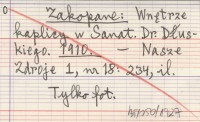 Zakopane: Wnętrze
kaplicy w Sanat. Dr Dłus-
kiego. 1910. — Nasze
Zdroje 1, nr 18: 234, il.
Tylko fot.